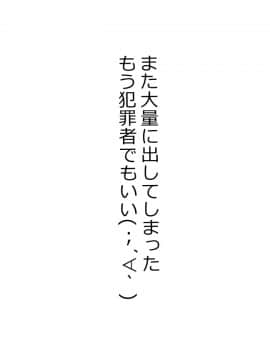 また大量に出してしまった
もう犯罪者でもいい(;´Д`)